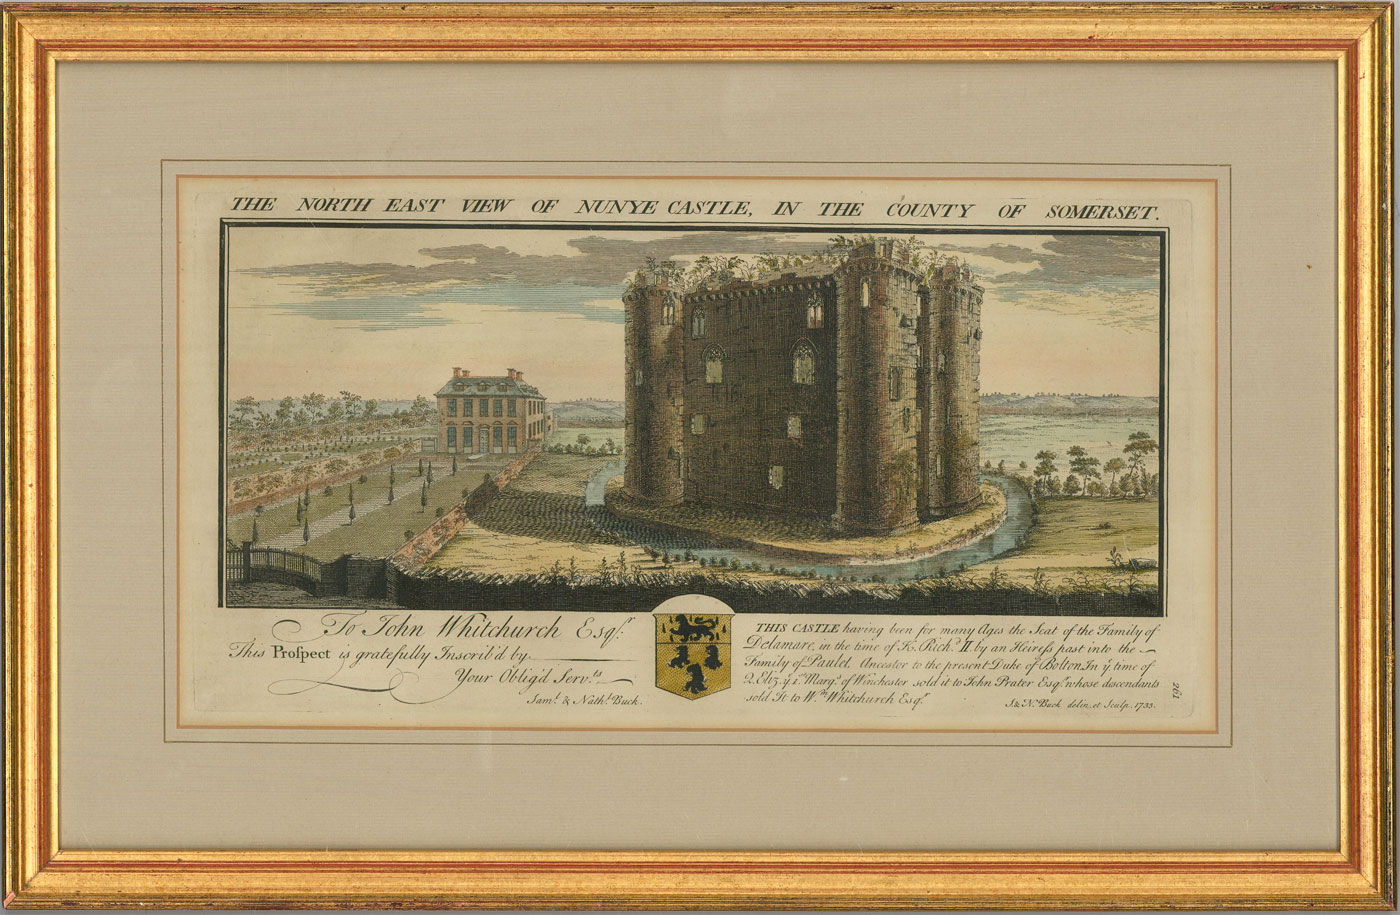 THE NORTH EAST VIEW OF NUNYE CASTLE, IN THE COUNTY OF SOMERSET.
To John Whitchurch Esqr:
This Prospect is gratefully Inscrib'd by
Your Oblig'd Servts
Saml. & Nathl. Buck.
THIS CASTLE having been for many Ages the Seat of the Family of
Delamare, in the time of K. Rich. II by an Heiress past into the
Family of Paulet, Ancestor to the present Duke of Bolton. In ye time of
Q. Eliz. ye 1st Marqs. of Winchester sold it to John Prater Esqr. whose descendants
sold It to Wm. Whitchurch Esqr.
S. & N. Buck delin. et Sculp. 1733.
261